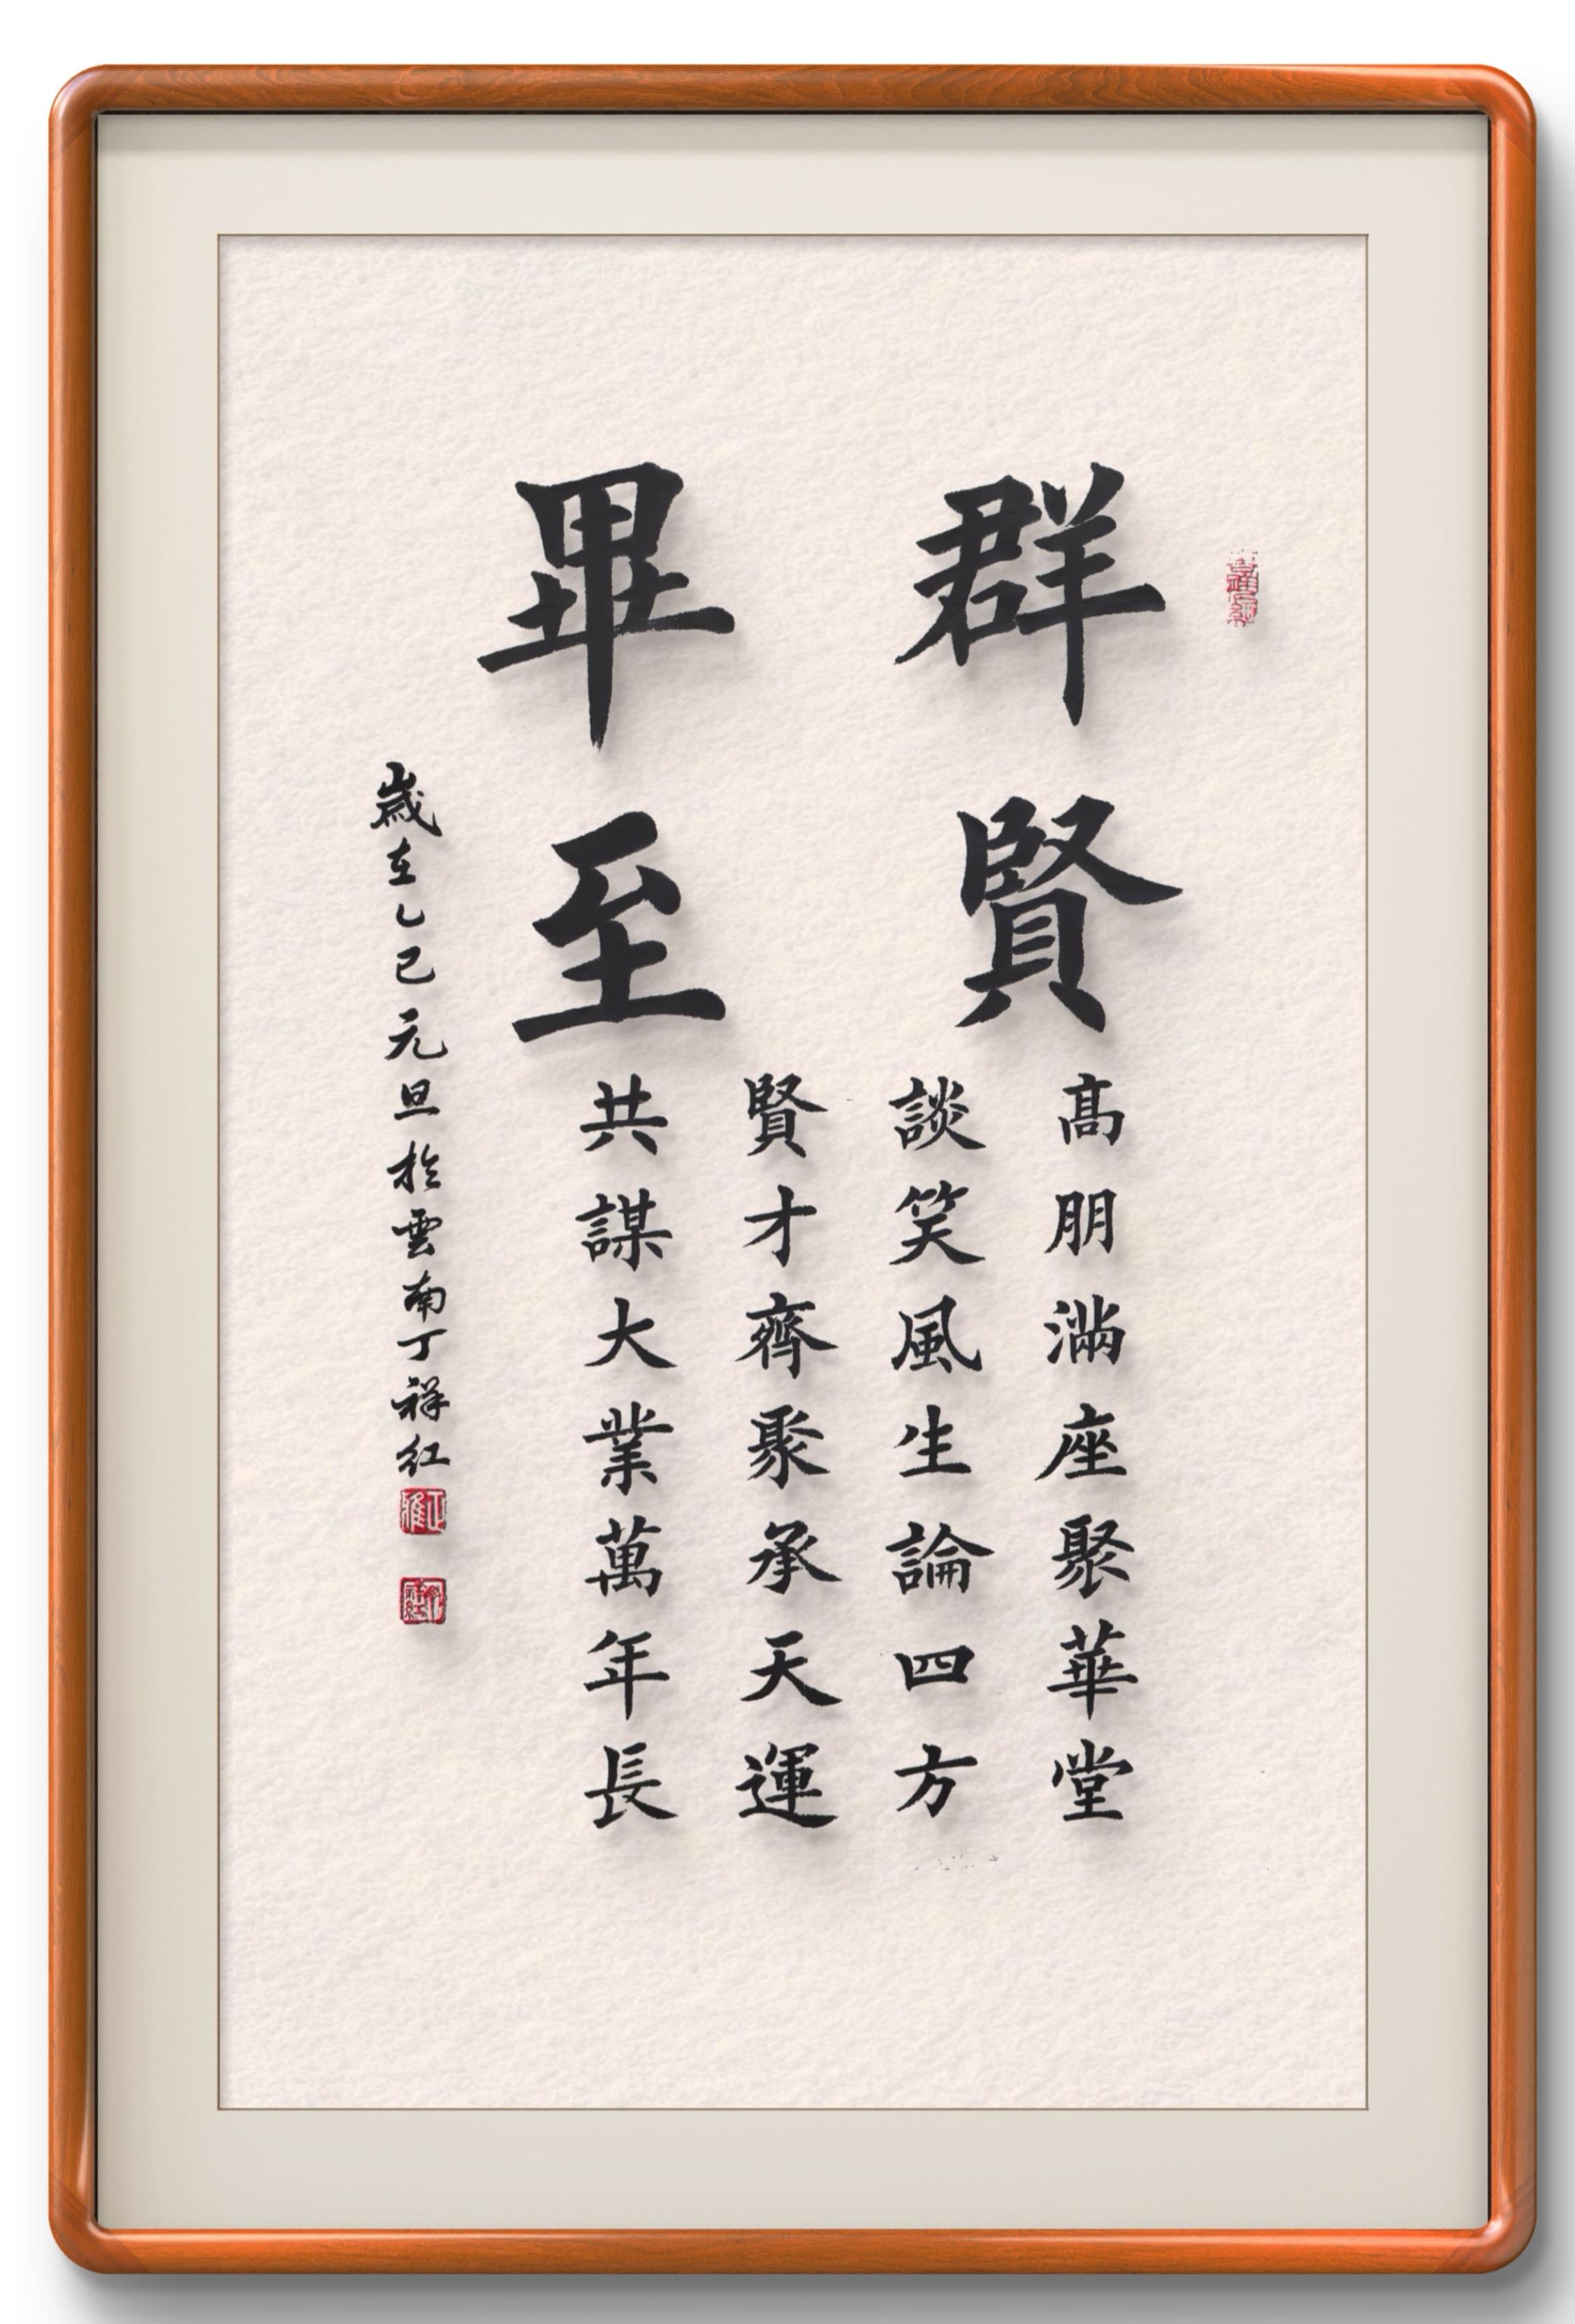 群賢
畢至
高朋滿座聚華堂
談笑風生論四方
賢才齊聚承天運
共謀大業萬年長
歲在乙巳元旦於雲南丁祥紅
正雅